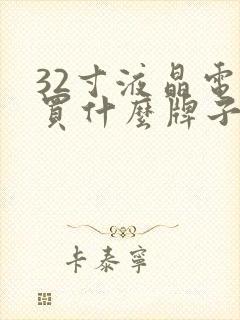 32寸液晶電
買什麼牌子
卡泰寧